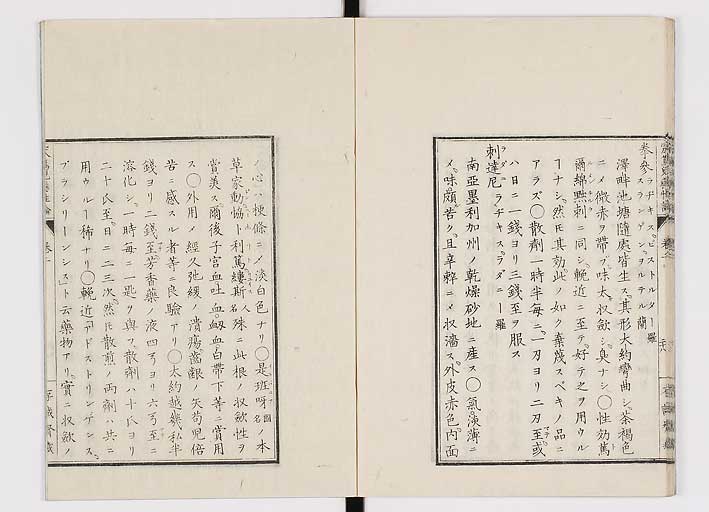 拳參 ラヂキス、ビストルター 羅
スランゲンヲルテル 蘭
澤畔池塘隨處皆生ス其形大約彎曲シ茶褐色
ニメ微赤ヲ帶ブ味太収歛シ臭ナシ○性効篤
爾綿㸃刺ニ同シ輓近ニ至テ好テ之ヲ用ウル
ーナシ然𪜈其効此ノ如ク棄蔑スベキノ品ニ
アラズ○散劑一時半毎ニ一刃ヨリ二刃至或
ハ日ニ一錢ヨリ三錢至ヲ服ス
刺達尼 ラヂキスラダニー 羅
南亞墨利加州ノ乾燥砂地ニ産ス○氣淡薄ニ
メ味頗苦ク且辛辣ニメ収濇ス外皮赤色内面
ノ心ハ梗條ニメ淡白色ナリ○是班呀國ノ本
草家動協ト利篤縷斯人名殊ニ此根ノ収歛性ヲ
賞美ス爾後子宮血吐血衂血白帶下等ニ賞用
ス○外用メ經久弛緩ノ潰瘍齒齦ノ矢苟児倍
苦ニ感スル者等ニ良驗アリ○太約越幾私半
錢ヨリ二錢至芳香藥ノ液四弓ヨリ六弓至ニ
溶化シ一時毎ニ一匙ヲ與フ散劑ハ十氐ヨリ
二十氐至日ニ二三次然𪜈散煎ノ両劑ハ共ニ
用ウルー稀ナリ○輓近「アドストリンゲンス、
ブラシリーンシス」ト云藥物アリ實ニ収歛ノ